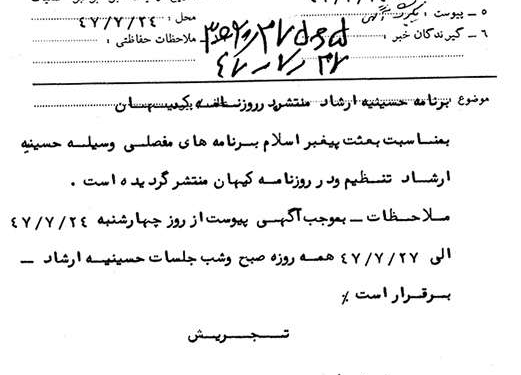 ۵ ـ پیوست :
محل :
۴۷/۷/۲۴
۶ ـ گیرندگان خبر :
ملاحظات حفاظتی :
موضوع برنامه حسینیه ارشاد منتشره در روزنامه کیهان
بمناسبت بعثت پیغبر اسلام برنامه های مفصلی وسیله حسینیه
ارشاد تنظیم ودر روزنامه کیهان منتشر گردیده است .
ملاحظات ـ بموجب آگهی پیوست از روز چهارشنبه ۴۷/۷/۲۴
الی ۴۷/۷/۲۷ همه روزه صبح وشب جلسات حسینیه ارشاد ـ
برقرار است ٪
تجریش